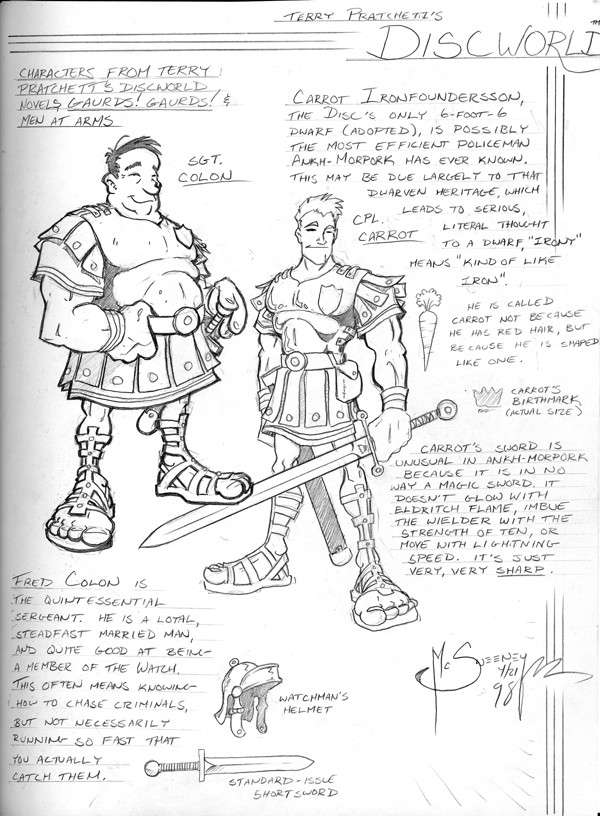 TERRY PRATCHETT'S
DISCWORLD™
CHARACTERS FROM TERRY
PRATCHETT'S DISCWORLD
NOVELS, GAURDS! GAURDS! &
MEN AT ARMS
SGT.
COLON
CARROT IRONFOUNDERSSON,
THE DISC'S ONLY 6-FOOT-6
DWARF (ADOPTED), IS POSSIBLY
THE MOST EFFICIENT POLICEMAN
ANKH-MORPORK HAS EVER KNOWN.
THIS MAY BE DUE LARGELY TO THAT
DWARVEN HERITAGE, WHICH
LEADS TO SERIOUS,
LITERAL THOUGHT
TO A DWARF, "IRONY"
MEANS "KIND OF LIKE
IRON".
CPL.
CARROT
HE IS CALLED
CARROT NOT BECAUSE
HE HAS RED HAIR, BUT
BECAUSE HE IS SHAPED
LIKE ONE.
CARROT'S
BIRTHMARK
(ACTUAL SIZE)
CARROT'S SWORD IS
UNUSUAL IN ANKH-MORPORK
BECAUSE IT IS IN NO
WAY A MAGIC SWORD. IT
DOESN'T GLOW WITH
ELDRITCH FLAME, IMBUE
THE WIELDER WITH THE
STRENGTH OF TEN, OR
MOVE WITH LIGHTNING
SPEED. IT'S JUST
VERY, VERY SHARP.
FRED COLON IS
THE QUINTESSENTIAL
SERGEANT. HE IS A LOYAL,
STEADFAST MARRIED MAN,
AND QUITE GOOD AT BEING
A MEMBER OF THE WATCH.
THIS OFTEN MEANS KNOWING
HOW TO CHASE CRIMINALS,
BUT NOT NECESSARILY
RUNNING SO FAST THAT
YOU ACTUALLY
CATCH THEM.
WATCHMAN'S
HELMET
STANDARD-ISSUE
SHORTSWORD
McSWEENEY
4/21
98